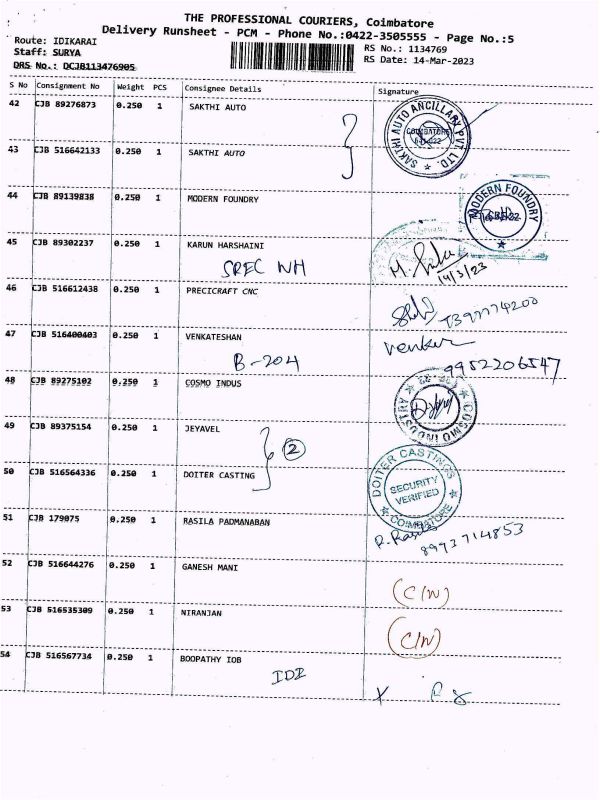 THE PROFESSIONAL COURIERS, Coimbatore
Delivery Runsheet - PCM - Phone No.:0422-3505555 - Page No.:5
Route: IDIKARAI
Staff: SURYA
DRS No.: DCJB113476905
RS No.: 1134769
RS Date: 14-Mar-2023
S No Consignment No Weight PCS Consignee Details Signature
42 CJB 89276873 0.250 1 SAKTHI AUTO
SAKTHI AUTO ANCILLARY PVT. LTD.
COIMBATORE
43 CJB 516642133 0.250 1 SAKTHI AUTO
44 CJB 89139838 0.250 1 MODERN FOUNDRY
MODERN FOUNDRY
45 CJB 89302237 0.250 1 KARUN HARSHAINI
SREC WH
14/3/23
46 CJB 516612438 0.250 1 PRECICRAFT CNC
47 CJB 516400403 0.250 1 VENKATESHAN
B-204
9952206547
48 CJB 89275102 0.250 1 COSMO INDUS
COSMO INDUSTRY
49 CJB 89375154 0.250 1 JEYAVEL
2
50 CJB 516564336 0.250 1 DOITER CASTING
DOITER CASTINGS
SECURITY
VERIFIED
COIMBATORE
51 CJB 179075 0.250 1 RASILA PADMANABAN
8973714853
52 CJB 516644276 0.250 1 GANESH MANI
(C/N)
53 CJB 516535309 0.250 1 NIRANJAN
(C/N)
54 CJB 516567734 0.250 1 BOOPATHY IOB